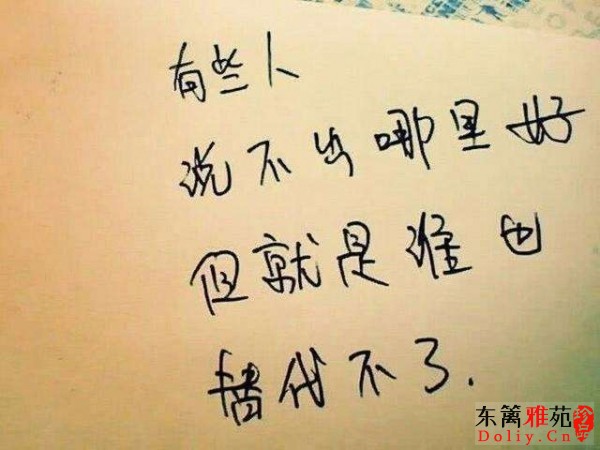 有些人
说不出哪里好
但就是谁也
替代不了.
东篱雅苑
Doliy.Cn